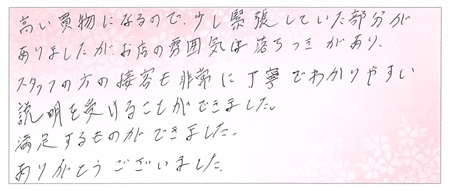 高い買物になるので、少し緊張していた部分が
ありましたが、お店の雰囲気は落ちつきがあり、
スタッフの方の接客も非常に丁寧でわかりやすい
説明を受けることができました。
満足するものができました。
ありがとうございました。